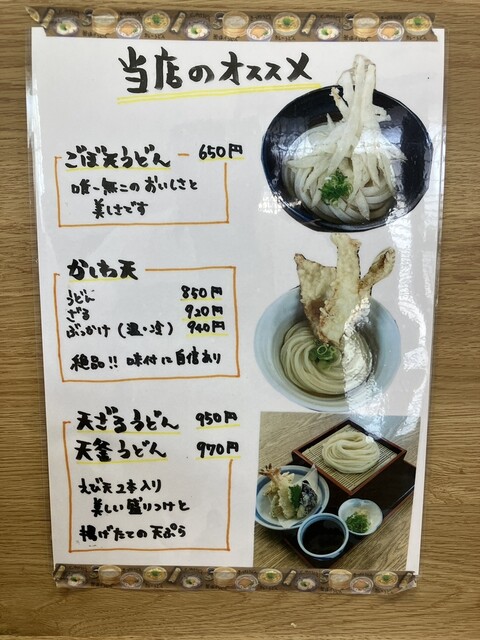 当店のオススメ
ごぼ天うどん 650円
唯一無二のおいしさと
美しさです
かしわ天
うどん 850円
ざる 920円
ぶっかけ (温・冷) 940円
絶品!! 味付に自信あり
天ざるうどん 950円
天釜うどん 970円
えび天2本入り
美しい盛りつけと
揚げたての天ぷら